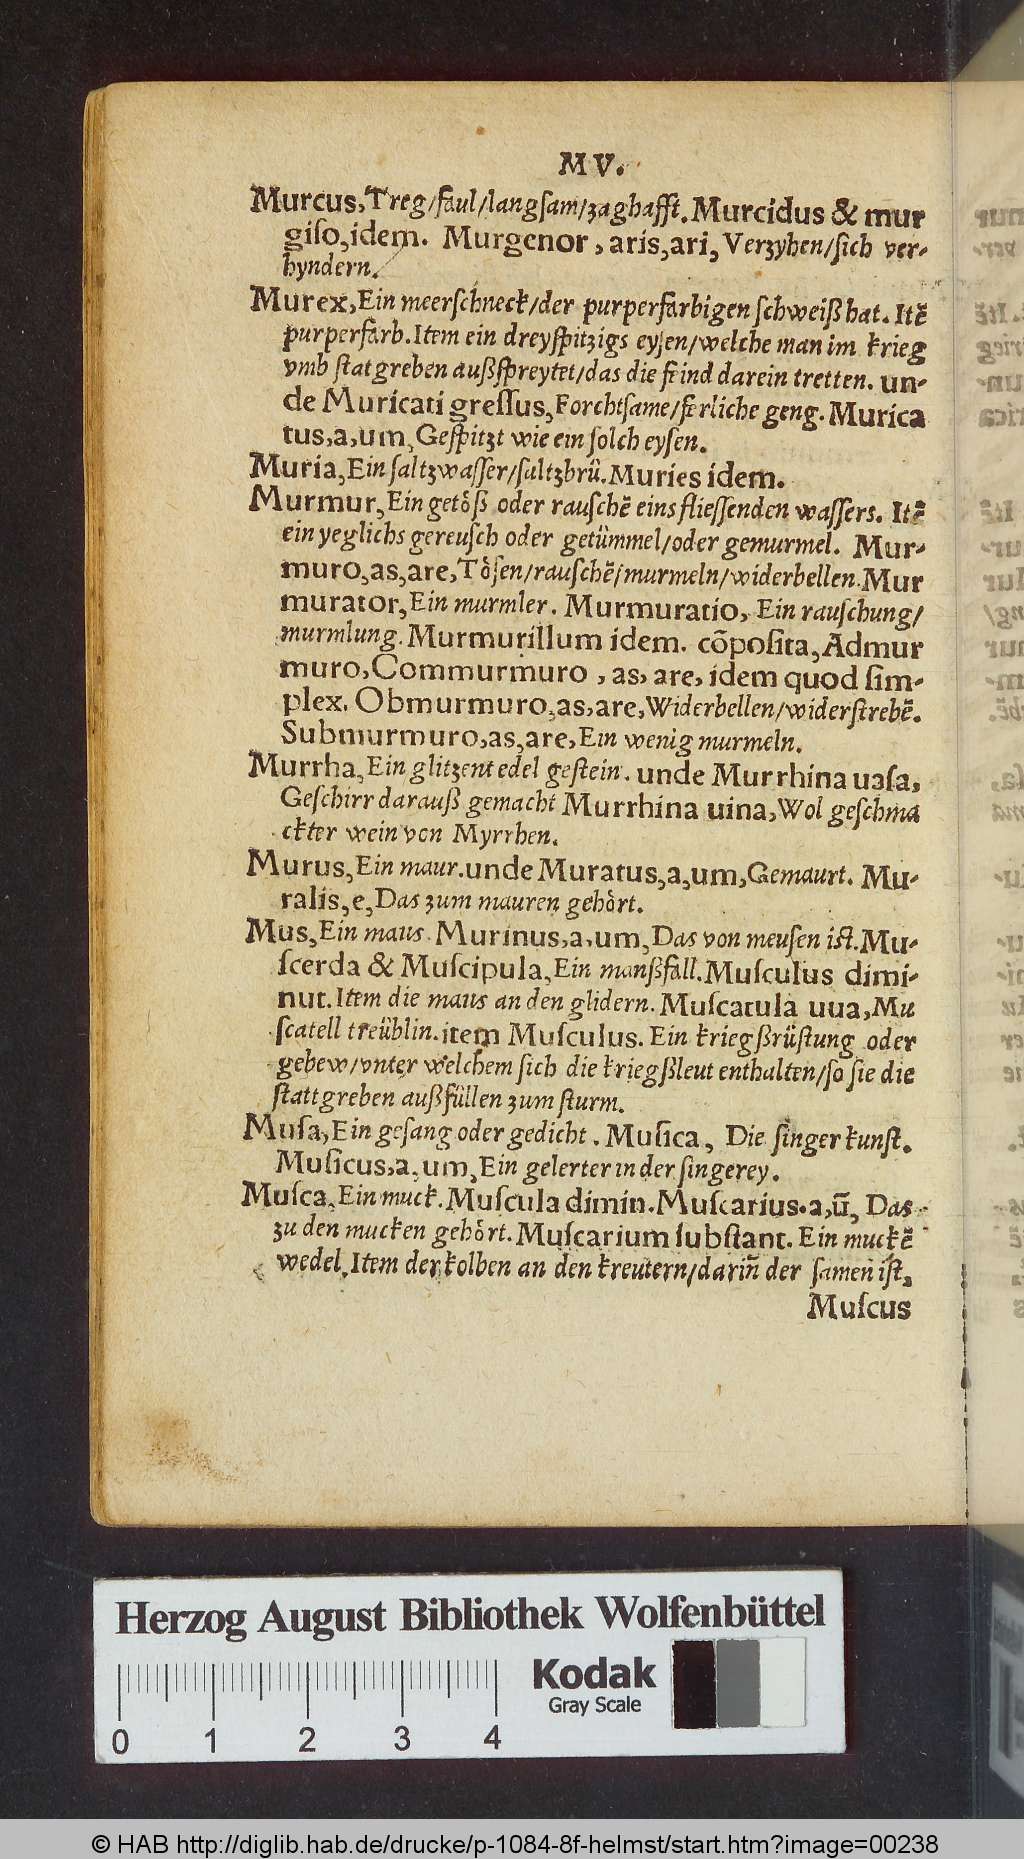 MV.
Murcus, Treg/faul/langſam/zaghafft. Murcidus & mur
giſo, idem. Murgenor, aris, ari, Verzyhen/ſich ver-
hyndern.
Murex, Ein meerſchneck/der purperfarbigen ſchweiß hat. Itē
purperfarb. Item ein dreyſpitzigs eyſen/welche man im krieg
vmb ſtatgreben außſpreytet/das die feind darein tretten. un-
de Muricati greſſus, Forchtſame/ferliche geng. Murica
tus, a, um, Geſpitzt wie ein ſolch eyſen.
Muria, Ein ſaltzwaſſer/ſaltzbrü. Muries idem.
Murmur, Ein getöß oder rauſchē eins flieſſenden waſſers. Itē
ein yeglichs gereuſch oder getümmel/oder gemurmel. Mur-
muro, as, are, Töſen/rauſchē/murmeln/widerbellen. Mur
murator, Ein murmler. Murmuratio, Ein rauſchung/
murmlung. Murmurillum idem. cōpoſita, Admur
muro, Commurmuro, as, are, idem quod ſim-
plex. Obmurmuro, as, are, Widerbellen/widerſtrebē.
Submurmuro, as, are, Ein wenig murmeln.
Murrha, Ein glitzent edel geſtein. unde Murrhina uaſa,
Geſchirr darauß gemacht Murrhina uina, Wol geſchma
ckter wein von Myrrhen.
Murus, Ein maur. unde Muratus, a, um, Gemaurt. Mu-
ralis, e, Das zum mauren gehört.
Mus, Ein maus. Murinus, a, um, Das von meuſen iſt. Mu-
ſcerda & Muſcipula, Ein manßfall. Muſculus dimi-
nut. Item die maus an den glidern. Muſcatula uua, Mu
ſcatell treüblin. item Muſculus. Ein kriegßrüſtung oder
gebew/vnter welchem ſich die kriegßleut enthalten/ſo ſie die
ſtattgreben außfüllen zum ſturm.
Muſa, Ein geſang oder gedicht. Muſica, Die ſinger kunſt.
Muſicus, a, um, Ein gelerter in der ſingerey.
Muſca, Ein muck. Muſcula dimin. Muſcarius. a, ū, Das
zu den mucken gehört. Muſcarium ſubſtant. Ein muckē
wedel. Item der kolben an den kreutern/dariñ der ſamen iſt,
Muſcus
Herzog August Bibliothek Wolfenbüttel
Kodak
Gray Scale
0 1 2 3 4
© HAB http://diglib.hab.de/drucke/p-1084-8f-helmst/start.htm?image=00238